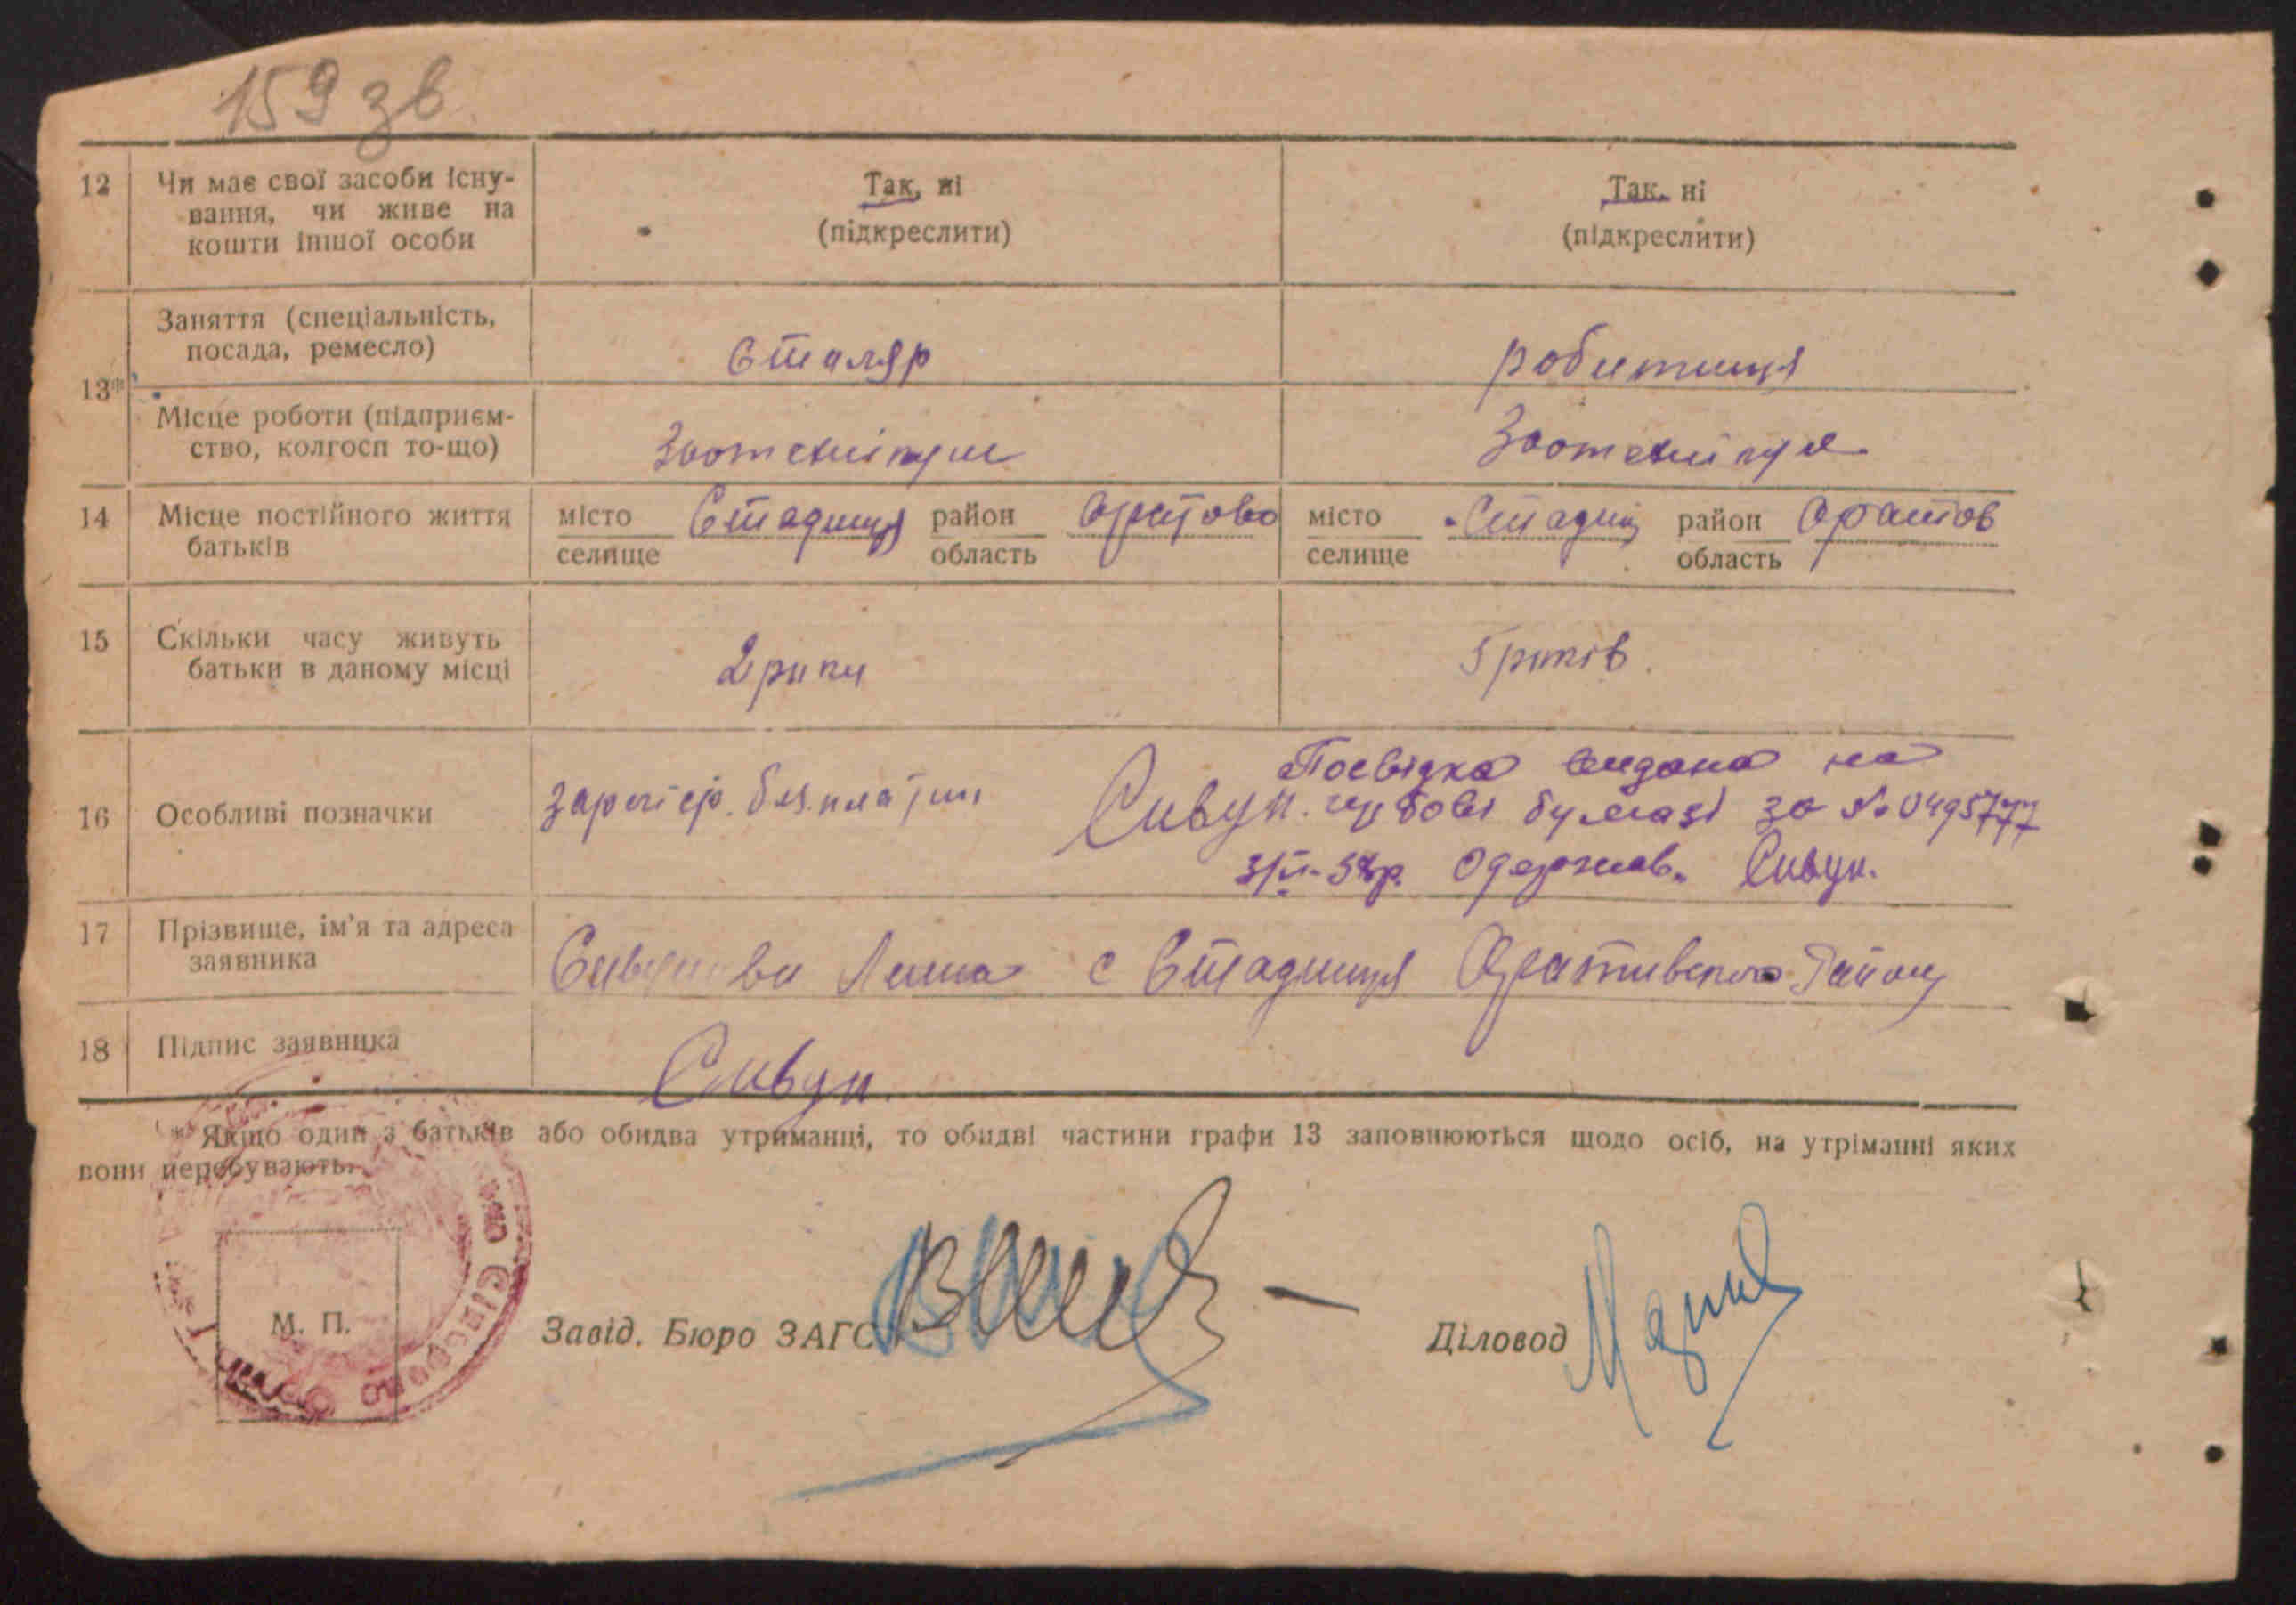 159 зв
12 Чи має свої засоби існу- Так, ні Так, ні
вання, чи живе на (підкреслити) (підкреслити)
кошти іншої особи
13* Заняття (спеціальність, Столяр робитниця
посада, ремесло)
Місце роботи (підприєм- Зоотехнікум
ство, колгосп то-що)
14 Місце постійного життя місто Стадниця район місто район Оратов
батьків селище область селище область
15 Скільки часу живуть 2 рики 5 риків
батьки в даному місці
Посвідка видана на
16 Особливі позначки Сивун. гербові бумазі за № 0495777
Одержав. Сивун.
17 Прізвище, ім'я та адреса с Стадниця Оративского Району
заявника
18 Підпис заявника Сивун
* Якщо один з батьків або обидва утриманці, то обидві частини графи 13 заповнюються щодо осіб, на утріманні яких
вони перебувають.
М. П. Завід. Бюро ЗАГС Діловод